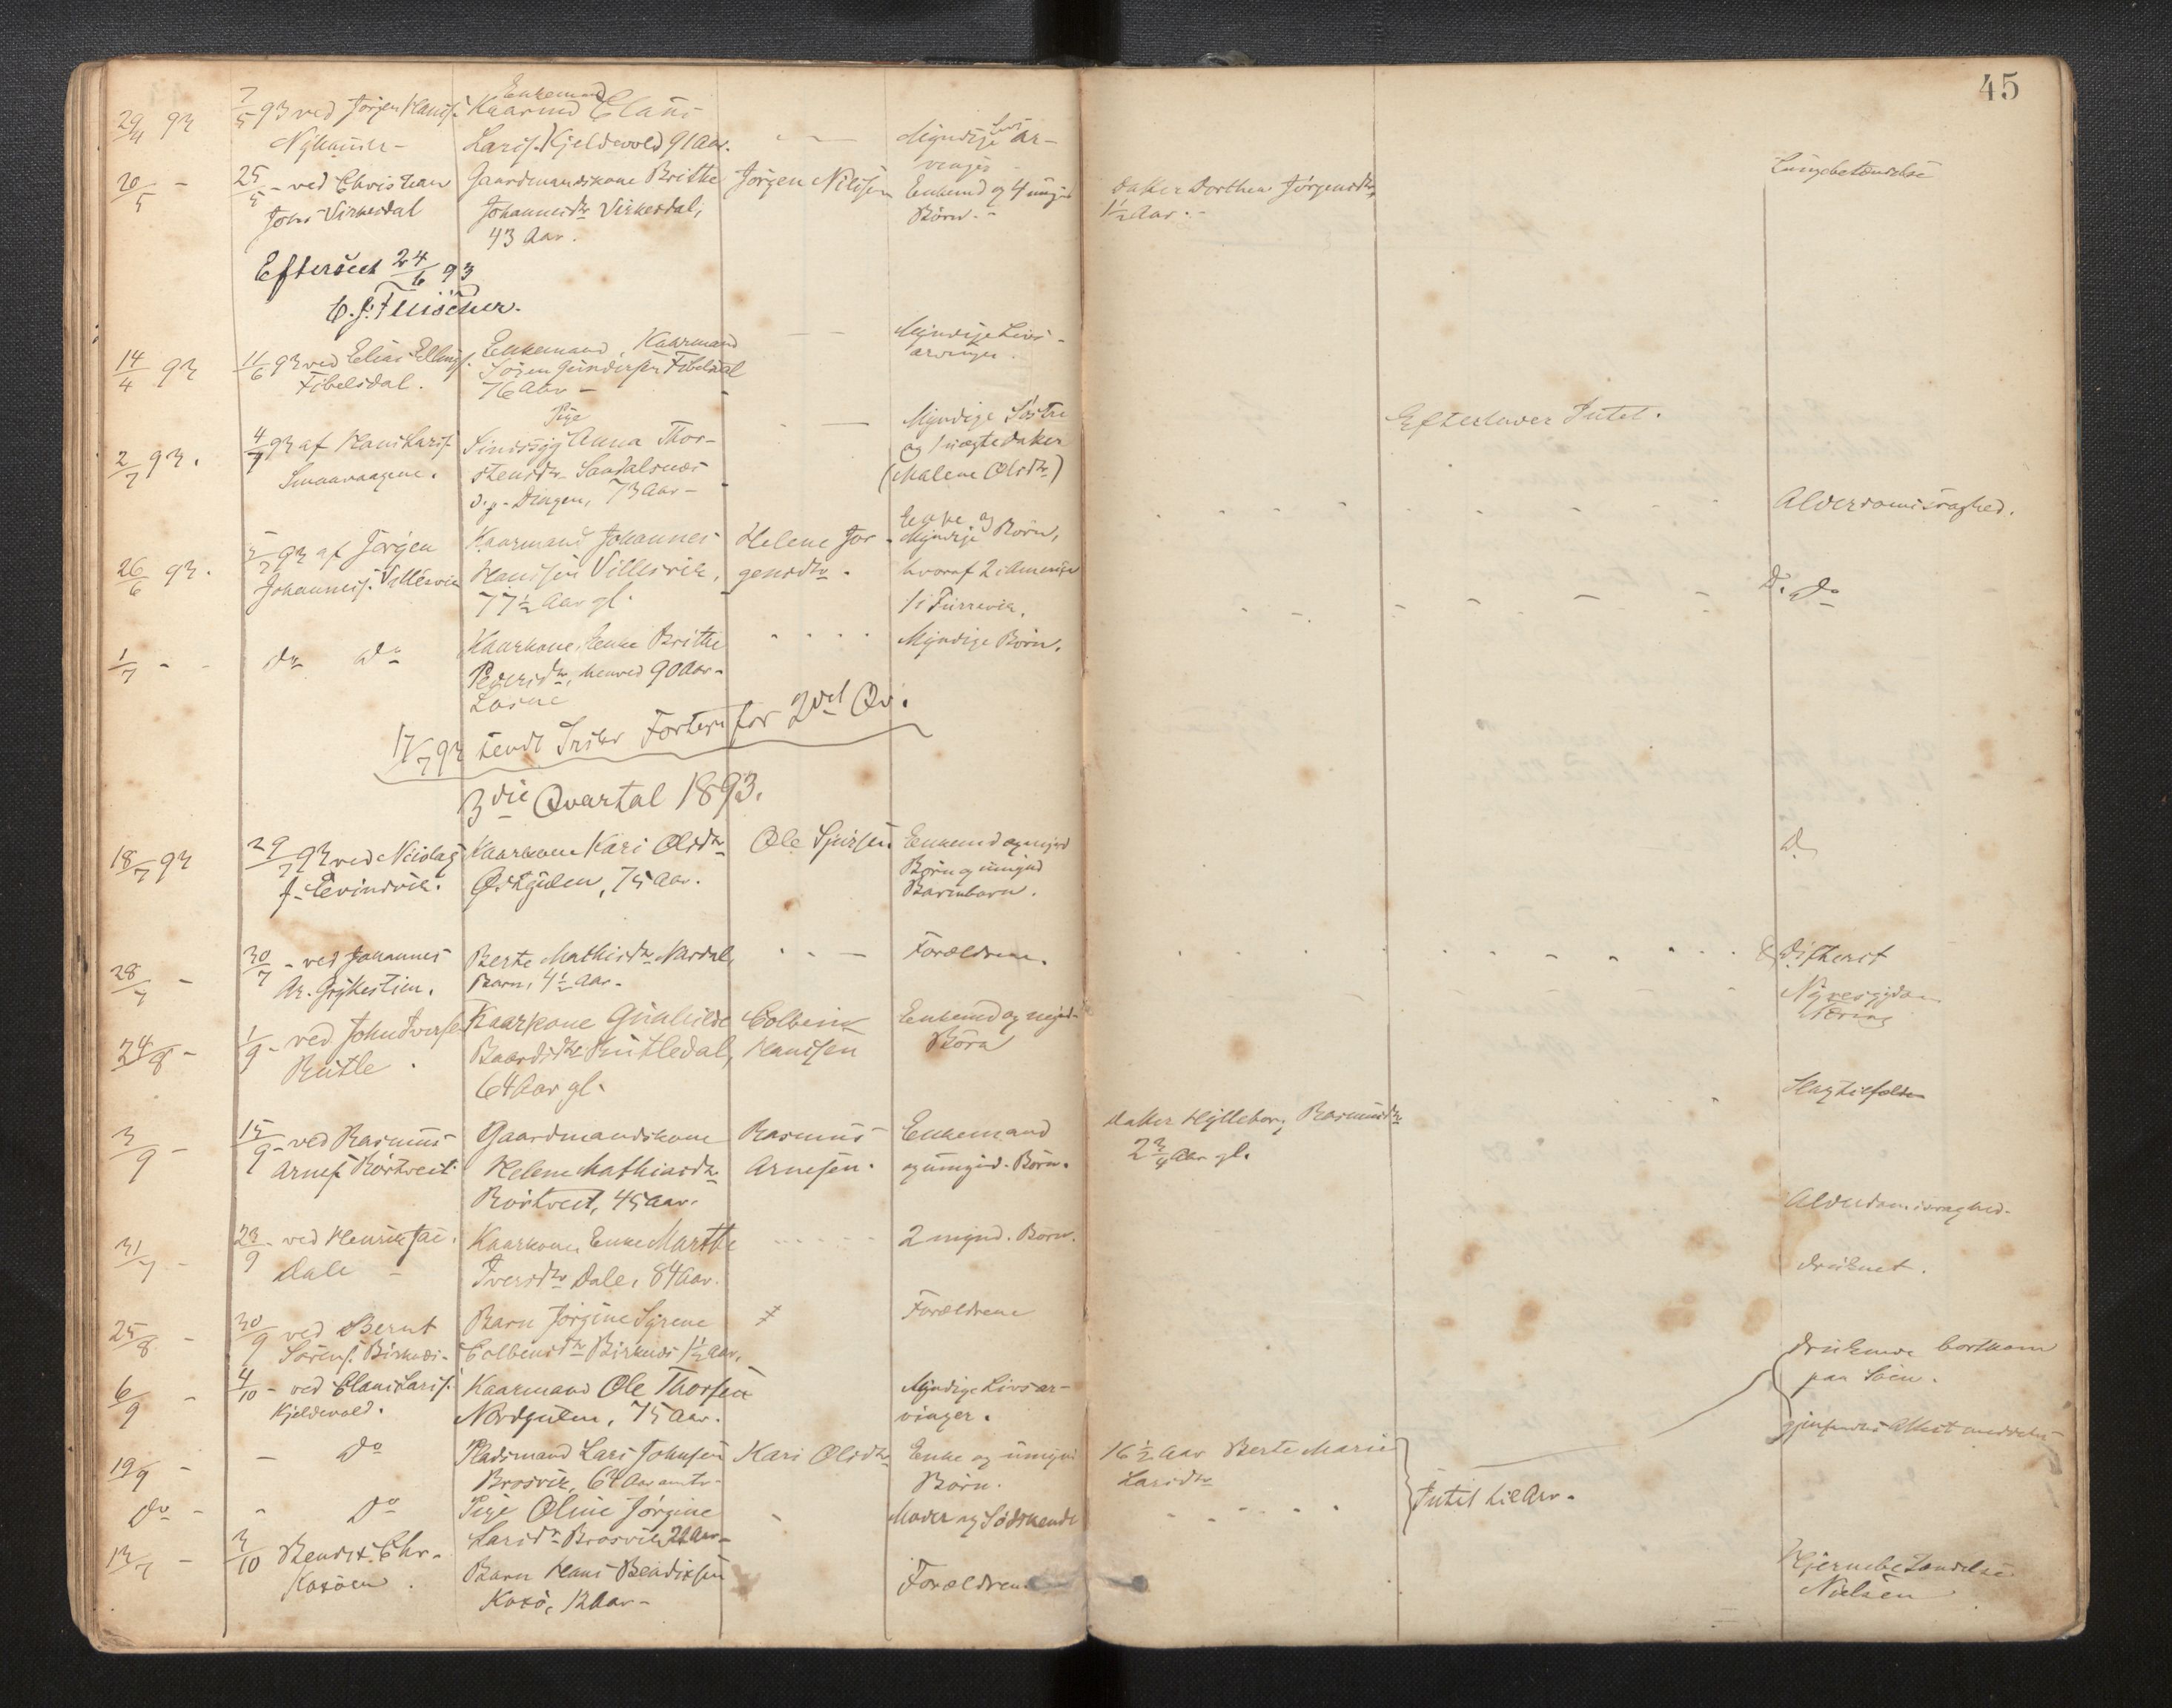 45
29/4 93
7/5 93 ved Jørgen Hansf.
Enkemand
Kaarmd Clans
Larsf. Kjeldevold 91 Aar.
Myndige Livsar-
vinger
20/5 -
25/5 - ved Christian
Johns Virkesdal
Gaardmandskone Brithe
Johannesdtr Virkesdal,
43 Aar.
Jørgen Nilssen
Enkemd og 4 umynd
Børn. -
Datter Dorthea Jørgensdtr
1 1/2 Aar. -
Lungebetændelse
Efterseet 24/6 93
14/4 93
11/6 93 ved Elias Ellings.
Fibelsdal.
Enkemand, Kaarmand
Søren Gundersen Fibelsdal
76 Aar -
Myndige Livs-
arvinger.
2/7 93.
4/7 93 af Hans Larsf.
Smaavaagene.
Pige
Sindssyg Anna Thor-
stensdtr Sandalsnæs
d.g. Dingen, 73 Aar -
Myndige Søstre
og 1 uægte datter
(Malene Olsdtr)
Efterlader Intet.
Alderdomssvaghed.
26/6 93.
5/7 93 af Jørgen
Johannesf. Villesvik
Kaarmand Johannes
Hanssen Villesvik,
77 1/2 Aar gl.
Helene Jør-
gensdtr.
Enke og
Myndige Børn,
hvoraf 2 i Amerika
1 i Furrevik.
Do Do
1/7 - -
Do Do
Kaarkone, Enke Brithe
Pedersdtr, henved 90 Aar -
Losne
Myndige Børn.
17/7 93 sendt Skifter Forten for 2det Qv.
3die Qvartal 1893.
18/7 93
29/7 93 ved Nicolay
J. Eivindvik.
Kaarkone Kari Olsdtr
Østgulen, 75 Aar.
Ole Sjursen
Enkemd og mynd
Børn og umynd
Barnebarn.
D.
28/7 -
30/7 - ved Johannes
Ar. Grythestien.
Berte Mathisdtr Nordal,
Barn, 4 1/2 Aar.
Forældrene.
Difterit
24/8 -
1/9 - ved John Iversen
Rutle.
Kaarkone Gunhilde
Baardsdtr Rutledal,
64 Aar gl.
Colbein
Hanssen
Enkemd og mynd.
Børn
Nyresygdom
Tæring
3/9 -
15/9 - ved Rasmus
Arnes. Rørtveit.
Gaardmandskone
Helene Mathiasdtr
Rørtveit, 45 Aar.
Rasmus
Arnesen.
Enkemand
og umynd. Børn.
Datter Hylleborg Rasmusdtr
2 3/4 Aar gl.
Slagtilfælde
31/7 -
23/9 - ved Henrik Jac.
Dale -
Kaarkone, Enke Marthe
Iversdtr Dale, 84 Aar.
2 mynd. Børn.
Alderdomssvaghed.
25/8 -
30/9 ved Bernt
Sørens. Birknæs -
Barn Jørgine Syrene
Colbensdtr Birknæs 1 1/2 Aar.
Forældrene
druknet.
6/9 -
4/10 - ved Clans Larsf.
Kjeldevold.
Kaarmand Ole Thorsen
Nordgulen, 75 Aar.
Myndige Livsar-
vinger.
druknede bortkom
paa Søen.
19/9 -
- Do
Pladsmand Lars Johnsen
Brosvik, 62 Aar omtr.
Kari Olsdtr
Enke og umynd
Børn.
16 1/2 Aar Berte Marie
Larsdtr
Intet til Arv.
Do -
- Do
Pige Oline Jørgine
Larsdtr Brosvik, 21 Aar -
Moder og Sødskende
13/7 -
3/10 Bendix Chr.
Koxøen.
Barn Hans Bendixsen
Koxø, 12 Aar -
Forældrene
Hjernebetændelse
Nielsen